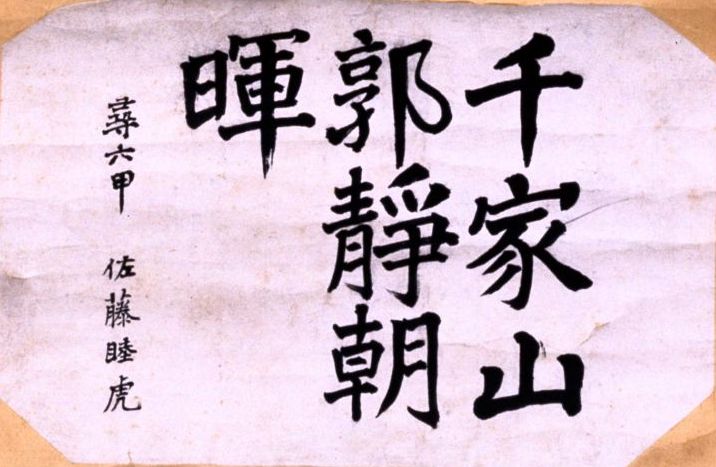 千家山
郭靜朝
暉
尋六甲 佐藤睦虎